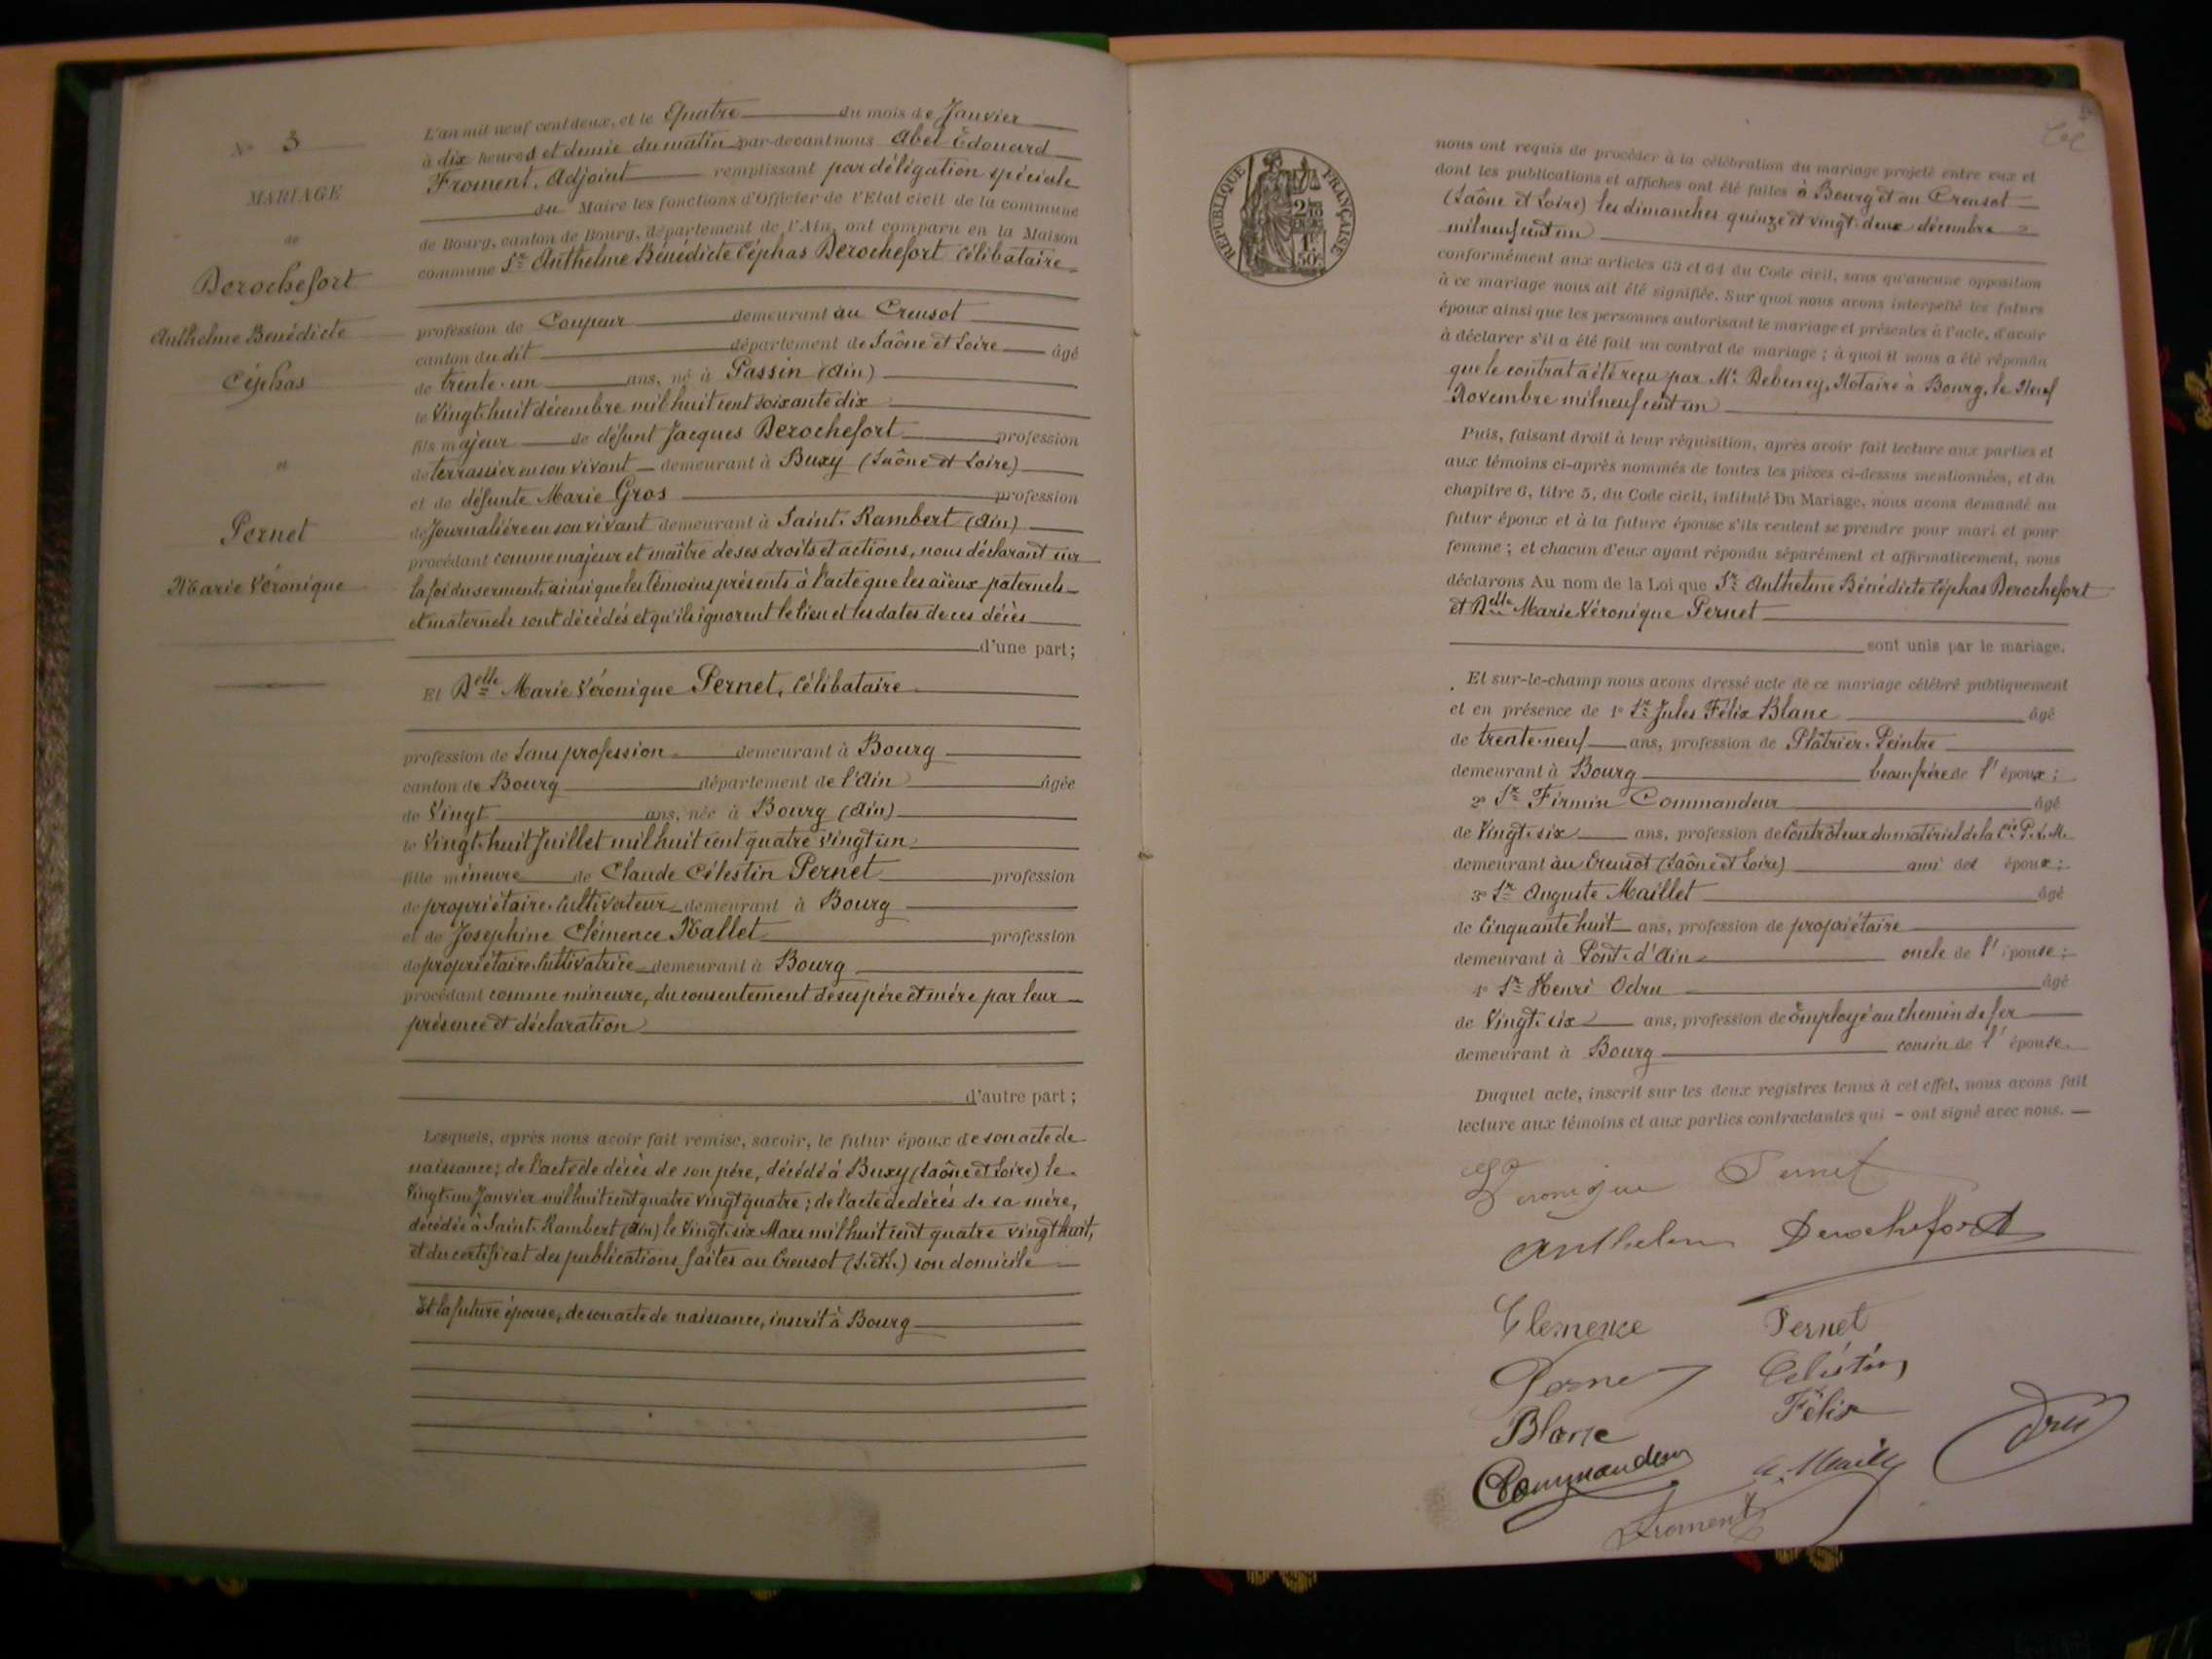 N° 3
MARIAGE
de
Derochefort
Anthelme Benédicte
Céphas
et
Pernet
Marie Véronique
L'an mil neuf cent deux, et le Quatre du mois de Janvier
à dix heures et demie du matin par-devant nous Abel Édouard
Froment, Adjoint remplissant par délégation spéciale
du Maire les fonctions d'Officier de l'Etat civil de la commune
de Bourg, canton de Bourg, département de l'Ain, ont comparu en la Maison
commune Sr Anthelme Bénédicte Céphas Derochefort Célibataire
profession de Coupeur demeurant au Creusot
canton du dit département de Saône et Loire âgé
de trente-un ans, né à Passin (Ain)
le Vingt-huit décembre mil huit cent soixante dix
fils majeur de défunt Jacques Derochefort profession
de terrassier en son vivant demeurant à Buxy (Saône et Loire)
et de défunte Marie Gros profession
de Journalière en son vivant demeurant à Saint-Rambert (Ain)
procédant comme majeur et maître de ses droits et actions, nous déclarant sur
la foi du serment, ainsi que les témoins présents à l'acte que les aïeux paternels
et maternels sont décédés et qu'ils ignorent le lieu et les dates de ces décès
d'une part;
Et Delle Marie Véronique Pernet, Célibataire
profession de Sans profession demeurant à Bourg
canton de Bourg département de l'Ain âgée
de Vingt ans, née à Bourg (Ain)
le Vingt-huit Juillet mil huit cent quatre vingt un
fille mineure de Claude Célestin Pernet profession
de propriétaire-Cultivateur demeurant à Bourg
et de Joséphine Clémence Vallet profession
de propriétaire-Cultivatrice demeurant à Bourg
procédant comme mineure, du consentement de ses père et mère par leur
présence et déclaration
d'autre part;
Lesquels, après nous avoir fait remise, savoir, le futur époux de son acte de
naissance; de l'acte de décès de son père, décédé à Buxy (Saône et Loire) le
Vingt-un Janvier mil huit cent quatre vingt quatre; de l'acte de décès de sa mère,
décédée à Saint-Rambert (Ain) le Vingt-six Mars mil huit cent quatre vingt huit,
et du certificat des publications faites au Creusot (S. et L.) son domicile
Et la future épouse, de son acte de naissance, inscrit à Bourg
RÉPUBLIQUE FRANÇAISE
2/10
EN SUS
1F
50c
nous ont requis de procéder à la célébration du mariage projeté entre eux et
dont les publications et affiches ont été faites à Bourg et au Creusot
(Saône et Loire) les dimanches quinze et vingt-deux décembre
mil neuf cent un
conformément aux articles 63 et 64 du Code civil, sans qu'aucune opposition
à ce mariage nous ait été signifiée. Sur quoi nous avons interpellé les futurs
époux ainsi que les personnes autorisant le mariage et présentes à l'acte, d'avoir
à déclarer s'il a été fait un contrat de mariage; à quoi il nous a été répondu
que le contrat a été reçu par Me Debeney, Notaire à Bourg, le Neuf
Novembre mil neuf cent un
Puis, faisant droit à leur réquisition, après avoir fait lecture aux parties et
aux témoins ci-après nommés de toutes les pièces ci-dessus mentionnées, et du
chapitre 6, titre 5, du Code civil, intitulé Du Mariage, nous avons demandé au
futur époux et à la future épouse s'ils veulent se prendre pour mari et pour
femme; et chacun d'eux ayant répondu séparément et affirmativement, nous
déclarons Au nom de la Loi que Sr Anthelme Bénédicte Céphas Derochefort
et Delle Marie Véronique Pernet
sont unis par le mariage.
Et sur-le-champ nous avons dressé acte de ce mariage célébré publiquement
et en présence de 1° Sr Jules Félix Blanc âgé
de trente-neuf ans, profession de Plâtrier-Peintre
demeurant à Bourg beau frère de l'époux;
2° Sr Firmin Commandeur âgé
de Vingt-six ans, profession de Contrôleur du matériel de la Cie P.L.M.
demeurant au Creusot (Saône et Loire) ami des époux;
3° Sr Auguste Maillet âgé
de Cinquante huit ans, profession de propriétaire
demeurant à Pont-d'Ain oncle de l'épouse;
4° Sr Henri Odru âgé
de Vingt-six ans, profession de Employé au Chemin de fer
demeurant à Bourg cousin de l'épouse.
Duquel acte, inscrit sur les deux registres tenus à cet effet, nous avons fait
lecture aux témoins et aux parties contractantes qui - ont signé avec nous.
Veronique Pernet
Anthelme Derochefort
Clemence Pernet
Pernet Célestin
Blanc Félix
Commandeur A. Maillet Odru
Froment